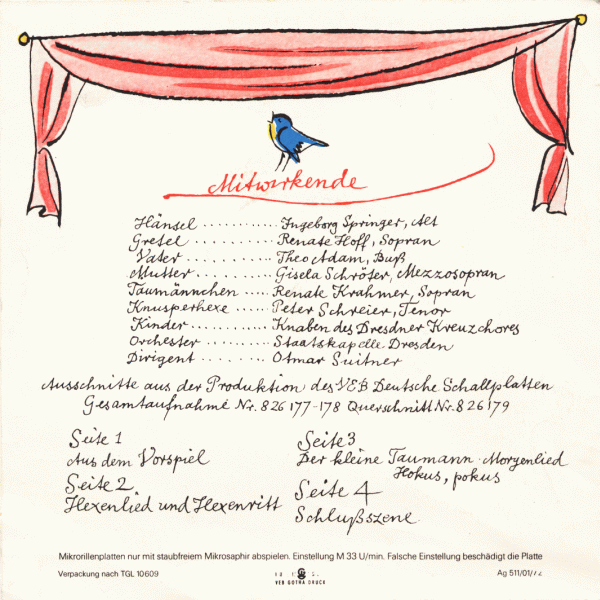 Mitwirkende
Hänsel ........... Ingeborg Springer, Alt
Gretel .......... Renate Hoff, Sopran
Vater ........... Theo Adam, Buß
Mutter .......... Gisela Schröter, Mezzosopran
Taumännchen ..... Renate Krahmer, Sopran
Knusperhexe ...... Peter Schreier, Tenor
Kinder .......... Knaben des Dresdner Kreuzchores
Orchester ....... Staatskapelle Dresden
Dirigent ........ Otmar Suitner
Ausschnitte aus der Produktion des VEB Deutsche Schallplatten
Gesamtaufnahme Nr. 826 177-178 Querschnitt Nr. 826 179
Seite 1
Aus dem Vorspiel
Seite 2
Hexenlied und Hexenritt
Seite 3
Der kleine Taumann · Morgenlied
Hokus, pokus
Seite 4
Schlußszene
Mikrorillenplatten nur mit staubfreiem Mikrosaphir abspielen. Einstellung M 33 U/min. Falsche Einstellung beschädigt die Platte
Verpackung nach TGL 10609
VEB GOTHA DRUCK
Ag 511/01/72